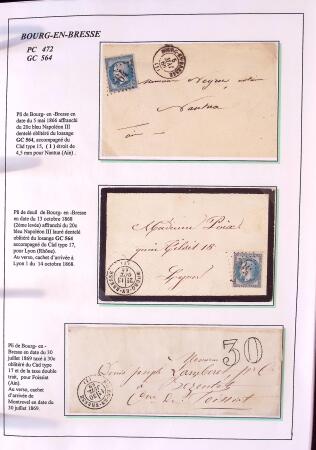 BOURG-EN-BRESSE
PC 472
GC 564
Pli de Bourg- en -Bresse en
date du 5 mai 1866 affranchi
du 20c bleu Napoléon III
dentelé oblitéré du losange
GC 564, accompagné du
Càd type 15, ( 1 ) étroit de
4,5 mm pour Nantua (Ain).
Monsieur
Nantua
Ain
Pli de deuil de Bourg- en -Bresse
en date du 13 octobre 1868
(2ème levée) affranchi du 20c
bleu Napoléon III lauré dentelé
oblitéré du losange GC 564
accompagné du Càd type 17,
pour Lyon (Rhône).
Au verso, cachet d'arrivée à
Lyon 1 du 14 octobre 1868.
Madame
quai 18
Lyon
Pli de Bourg- en -
Bresse en date du 30
juillet 1869 taxé à 30c
oblitéré du Càd type
17 et de la taxe double
trait, pour Foissiat
(Ain).
Au verso, cachet
d'arrivée de
Montrevel en date du
30 juillet 1869.
30
Monsieur
joseph